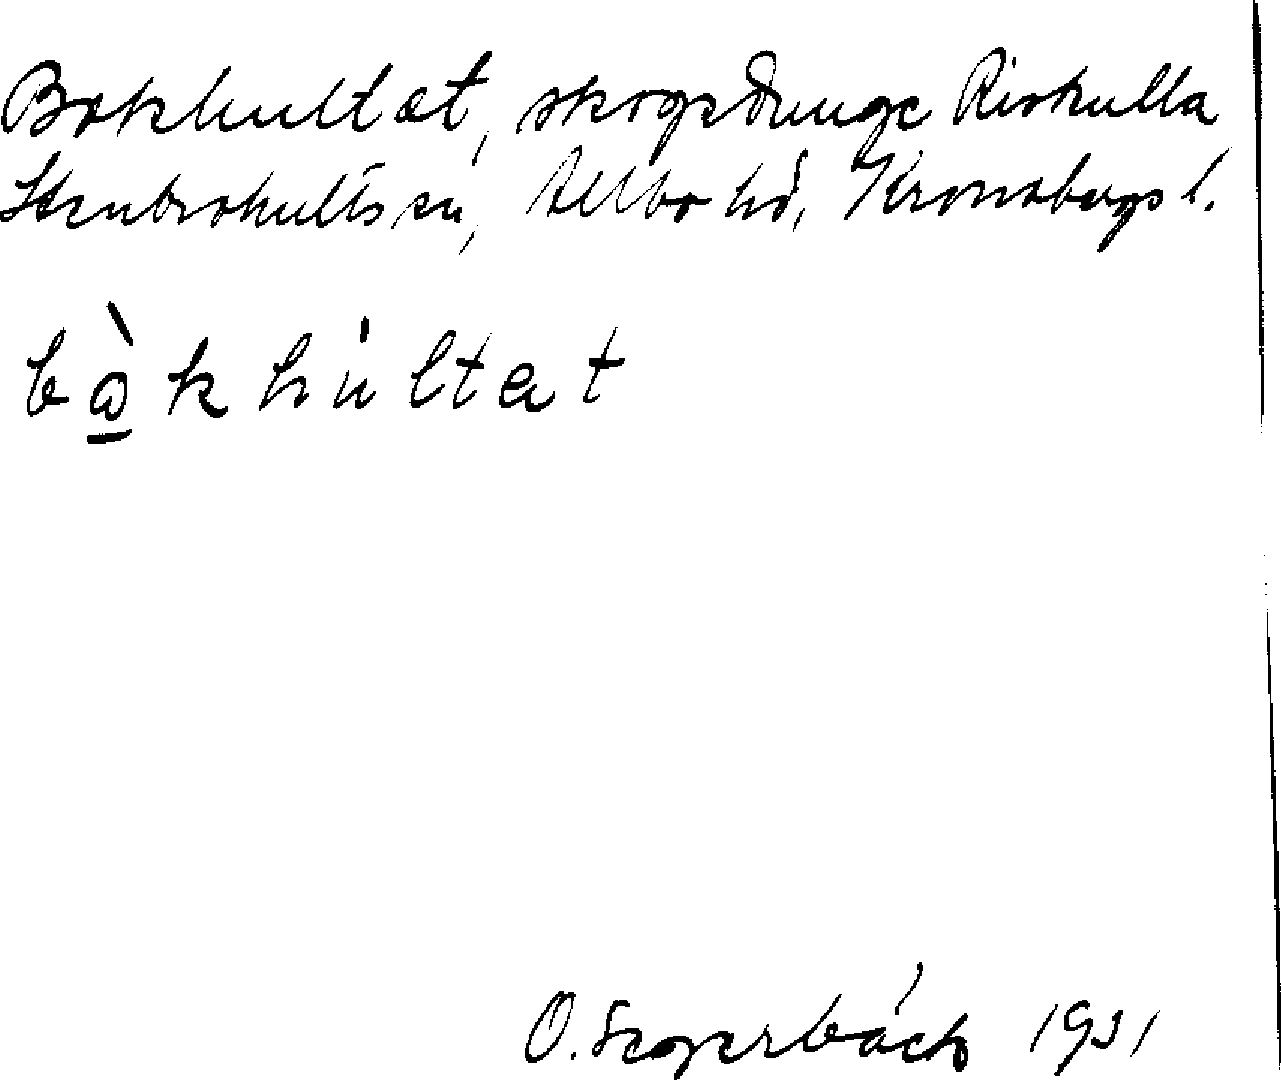 Bokhultet, skogsdunge Rishulla
Stenbrohults sn, Allbo hd, Kronobergs l.
bòkhu̍ltat
O. Segerbäck 1931